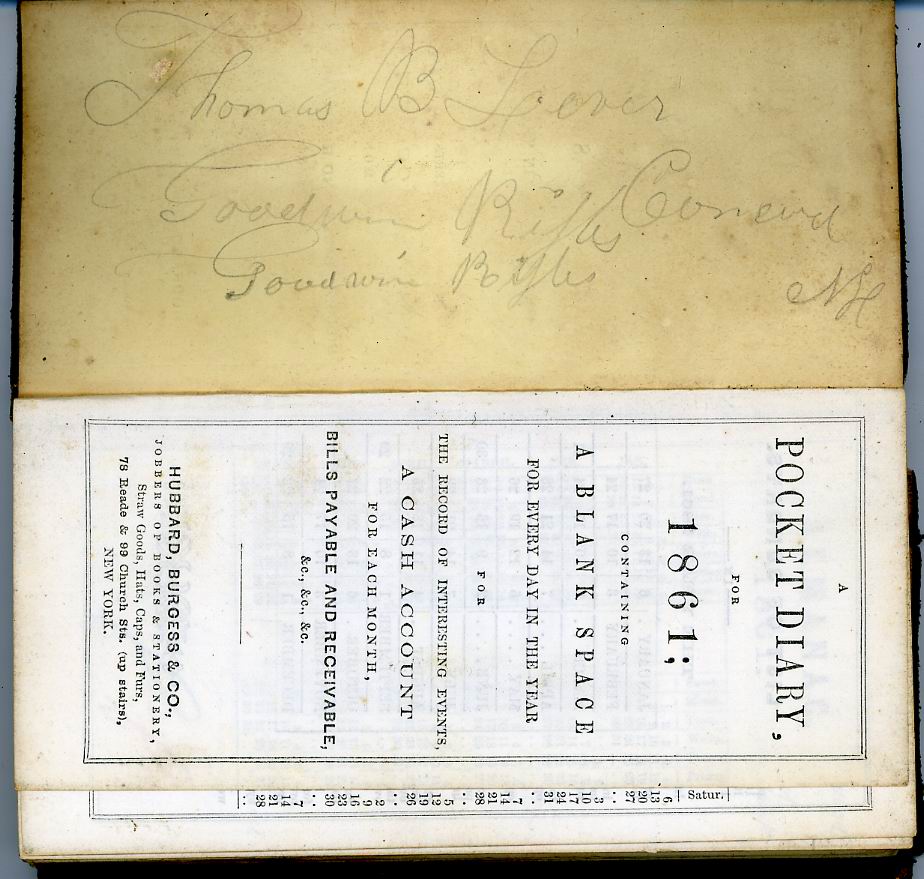 Thomas B Leaver
Goodwin Rifles Concord
Goodwin Rifles NH
A
POCKET DIARY,
FOR
1861;
CONTAINING
A BLANK SPACE
FOR EVERY DAY IN THE YEAR
FOR
THE RECORD OF INTERESTING EVENTS,
A CASH ACCOUNT
FOR EACH MONTH,
BILLS PAYABLE AND RECEIVABLE,
&c., &c., &c.
HUBBARD, BURGESS & CO.,
JOBBERS OF BOOKS & STATIONERY,
Straw Goods, Hats, Caps, and Furs,
78 Reade & 99 Church Sts. (up stairs),
NEW YORK.
Satur.
6
13
20
27
..
3
10
17
24
31
..
7
14
21
28
..
5
12
19
26
..
2
9
16
23
30
..
7
14
21
28
..